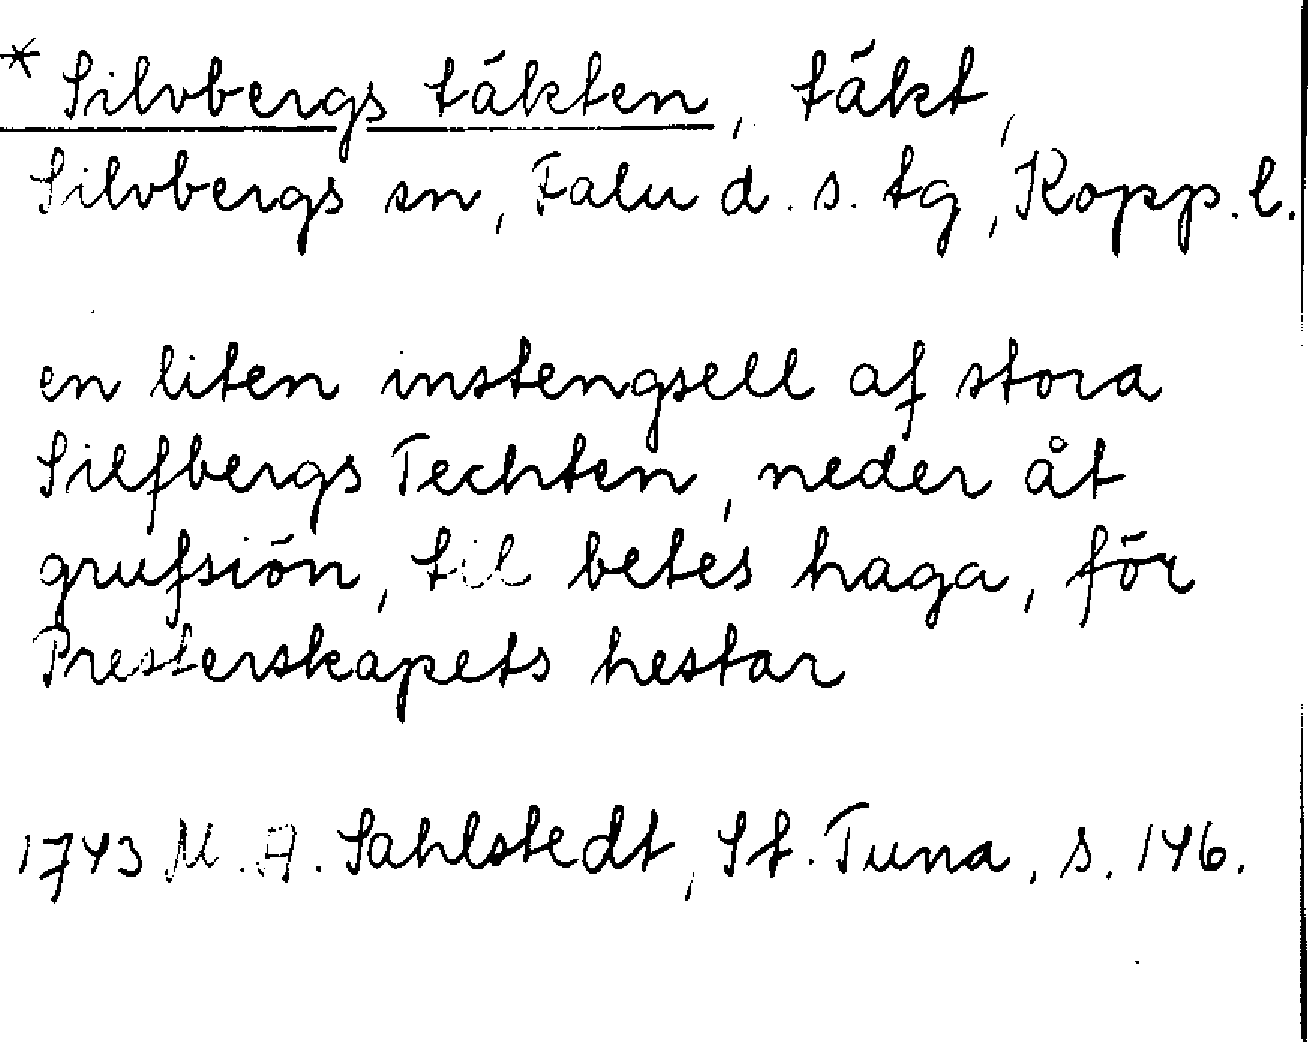 * Silvbergs täkten, täkt,
Silvbergs sn, Falu d. s. tg, Kopp. l.
en liten instengsell af stora
Silfbergs Techten, neder åt
grufsiön, til betes haga, för
Presterskapets hestar
1743 M. A. Sahlstedt, St. Tuna, s. 146.